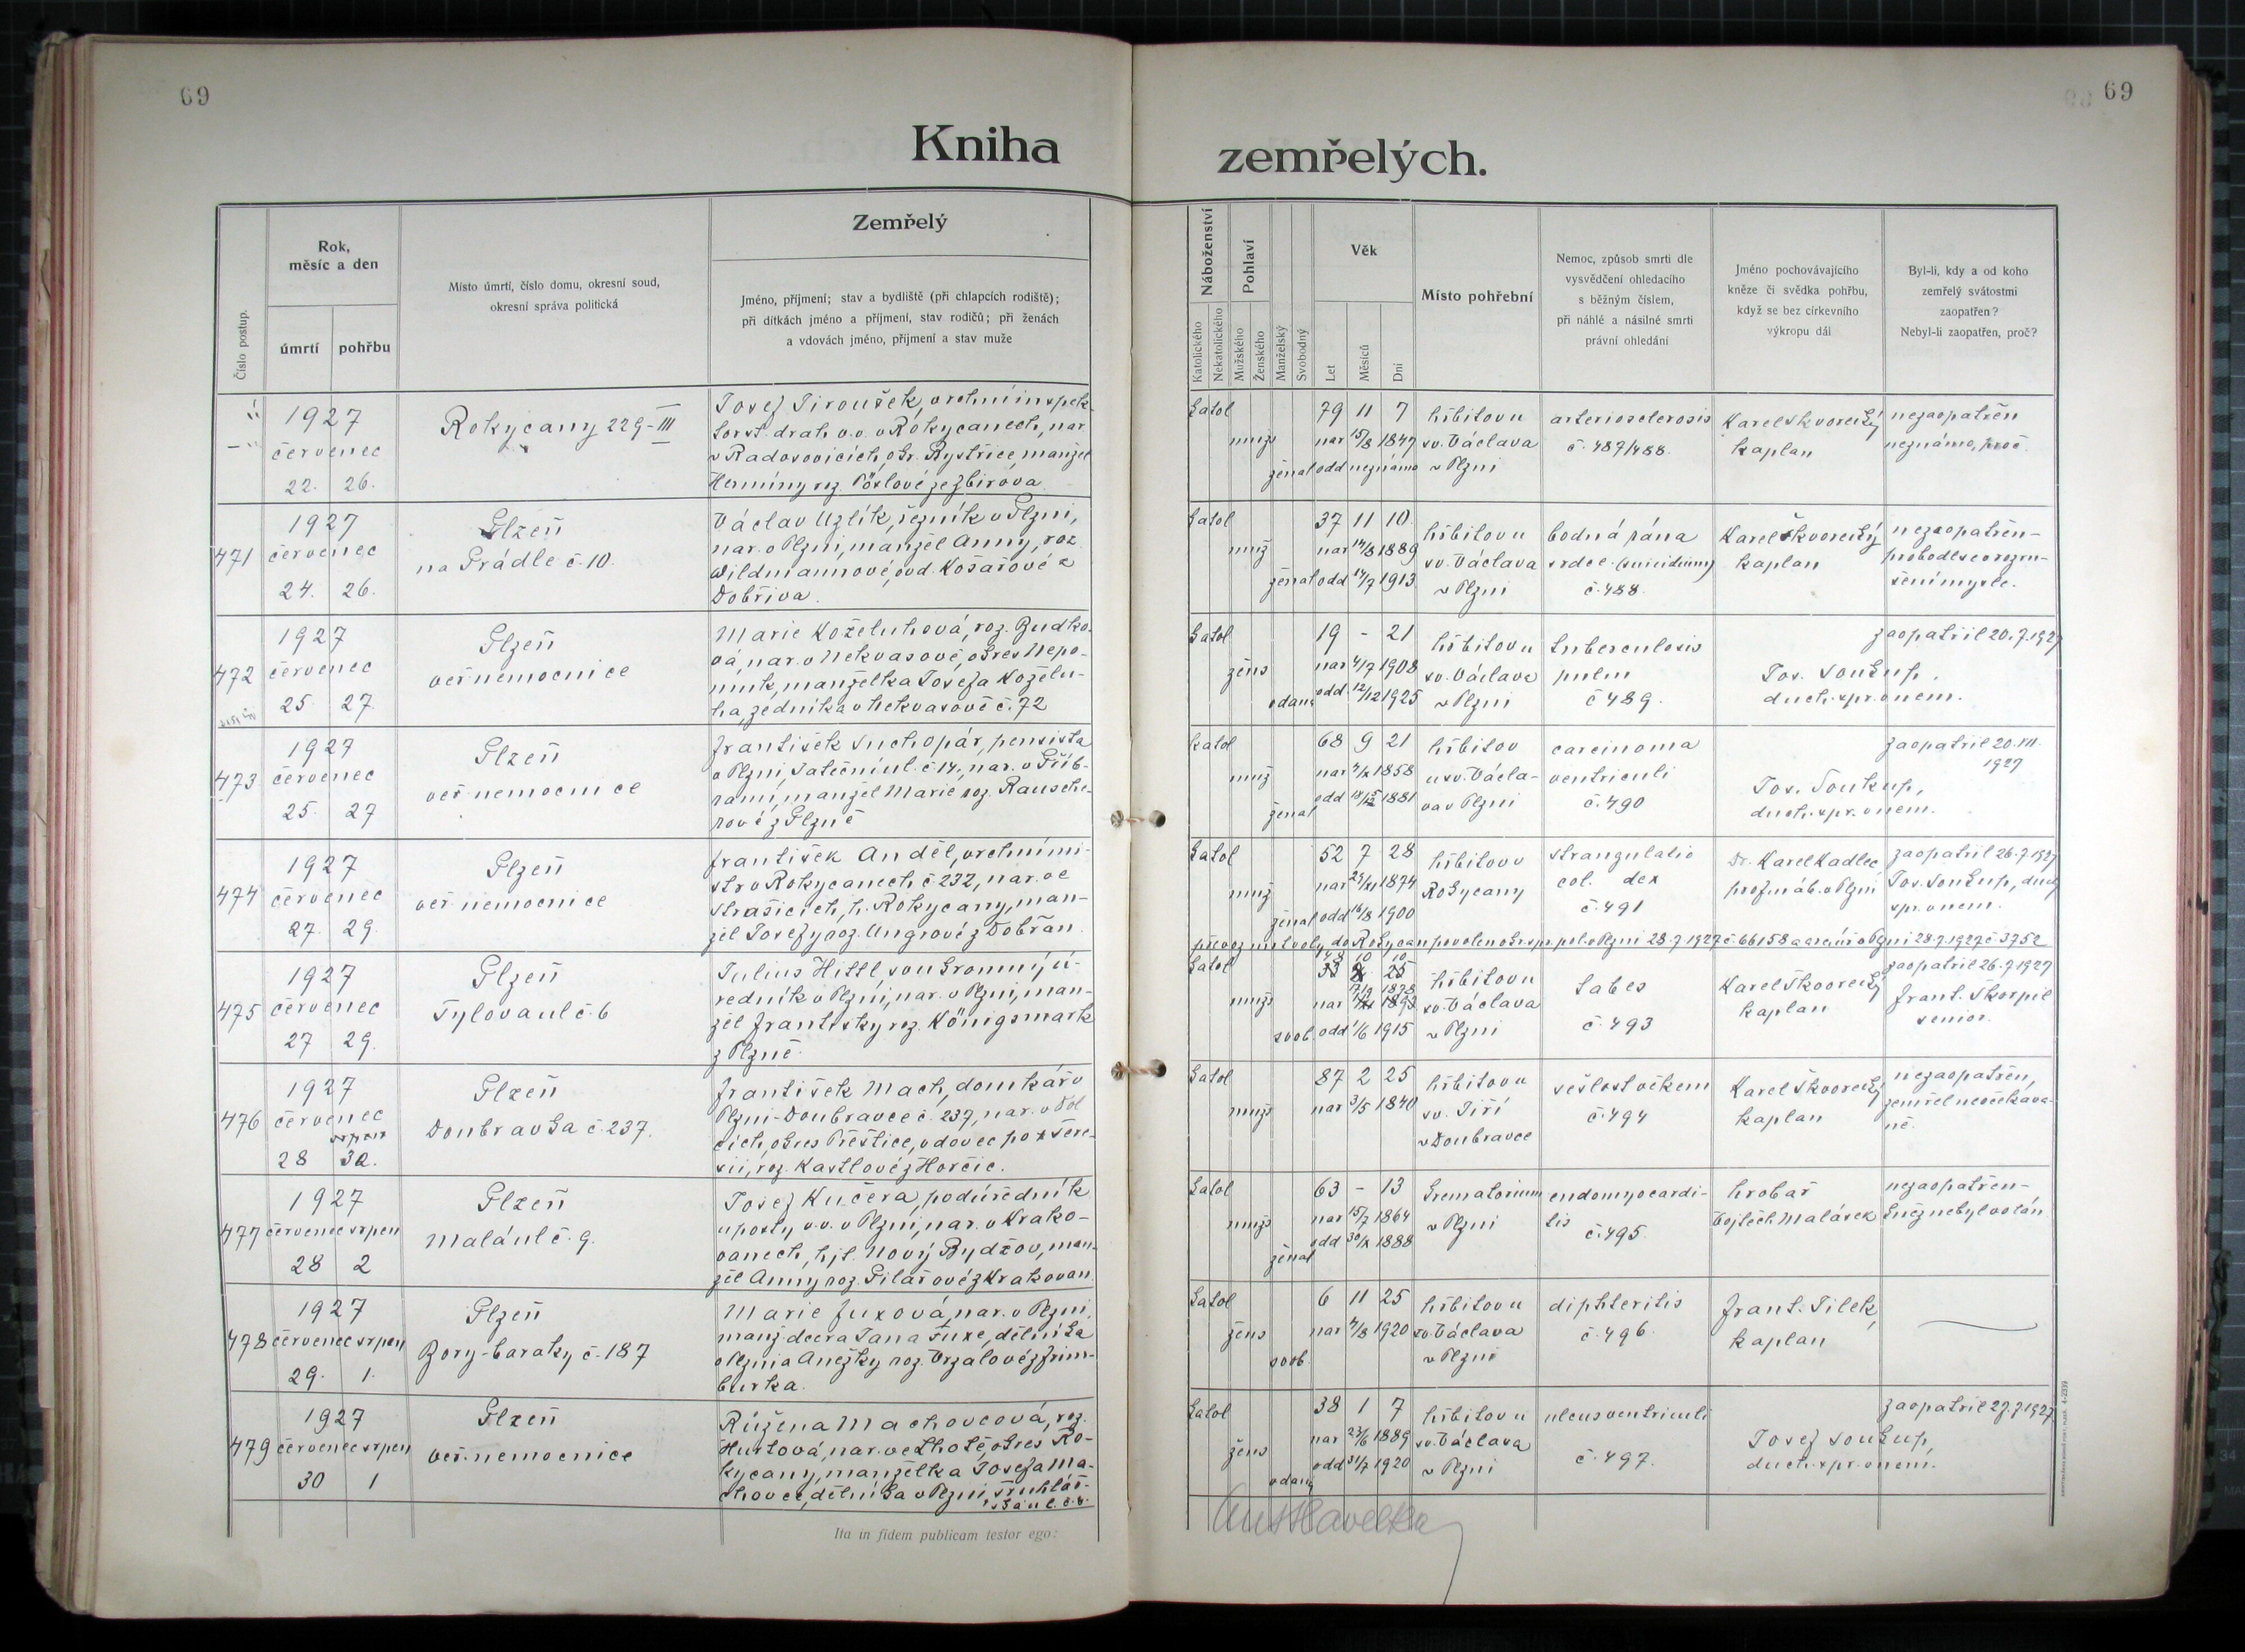 69
69
Kniha
zemřelých.
Číslo postup.
Rok,
měsíc a den
úmrtí
pohřbu
Místo úmrtí, číslo domu, okresní soud,
okresní správa politická
Zemřelý
Jméno, příjmení; stav a bydliště (při chlapcích rodiště);
při dítkách jméno a příjmení, stav rodičů; při ženách
a vdovách jméno, příjmení a stav muže
Náboženství
Katolického
Nekatolického
Pohlaví
Mužského
Ženského
Manželský
Svobodný
Věk
Let
Měsíců
Dní
Místo pohřební
Nemoc, způsob smrti dle
vysvědčení ohledacího
s běžným číslem,
při náhlé a násilné smrti
právní ohledání
Jméno pochovávajícího
kněze či svědka pohřbu,
když se bez církevního
výkropu dál
Byl-li, kdy a od koho
zemřelý svátostmi
zaopatřen?
Nebyl-li zaopatřen, proč?
1927
červenec
22. 26.
Rokycany 229-III
Josef Jiroušek, vrchní inspek-
tor st. drah v.v. v Rokycanech, nar.
v Radosovicích, okr. Bystřice, manžel
Hermíny roz. Pöslové ze Zbirova
katol
muž
ženat
79 11 7
nar 15/8 1847
odd neznámo
hřbitov u
sv. Václava
v Plzni
arteriosclerosis
č. 487/488.
Karel Škvorecký
kaplan
nezaopatřen
neznámo, proč.
471
1927
červenec
24. 26.
Plzeň
na Prádle č. 10.
Václav Uzlík, řezník v Plzni,
nar. v Plzni, manžel Anny, roz
Wildmannové, ovd. Košařové z
Dobříva.
katol
muž
ženat
37 11 10.
nar 14/8 1889
odd 14/7 1913
hřbitov u
sv. Václava
v Plzni
bodná rána
srdce. (suicidium)
č. 488.
Karel Škvorecký
kaplan
nezaopatřen-
probodl se v rozru-
šení mysle.
472
1927
červenec
25. 27.
Plzeň
veř. nemocnice
Marie Koželuhová, roz. Budko-
vá, nar. v Nekvasově, okres Nepo-
muk, manželka Josefa Koželu-
ha, zedníka v Nekvasově č. 72
katol
žens
vdaná
19 - 21
nar 4/7 1908
odd. 12/12 1925
hřbitov u
sv. Václava
v Plzni
tuberculosis
pulm
č 489.
Jos. Soukup,
duch. spr. v nem.
zaopatřil 20.7.1927
473
1927
červenec
25. 27
Plzeň
veř. nemocnice
František Suchopár, pensista
v Plzni, Jateční ul. č. 14., nar. v Příb-
rami, manžel Marie roz. Rausche-
rové z Plzně
katol
muž
ženat
68 9 21
nar 4/X 1858
odd 1881
hřbitov
u sv. Václa-
va v Plzni
carcinoma
ventriculi
č. 490
Jos. Soukup,
duch. spr. v nem.
zaopatřil 20. VII.
1927
474
1927
červenec
27. 29.
Plzeň
veř. nemocnice
František Anděl, vrchní mi-
str v Rokycanech č. 232, nar. ve
Strašicích, h. Rokycany, man-
žel Josefy roz. Ungrové z Dobřan
katol
muž
ženat
52 7 28
nar 29/XI 1874
odd 16/8 1900
hřbitov v
Rokycany
strangulatio
col. dex
č. 491
Dr. Karel Kadlec
prof. náb. v Plzni
zaopatřil 26.7.1927
Jos. Soukup, duch
spr. v nem.
převoz mrtvoly do Rokycan povolen okr. spr. pol. v Plzni 28.7.1927 č. 66158 a arciúř. v Plzni 28.7.1927 č. 3752
475
1927
červenec
27 29.
Plzeň
Tylova ul č. 6
Julius Hittl soukromný ú-
ředník v Plzni, nar. v Plzni, man-
žel Františky roz. Königsmark
z Plzně.
katol
muž
svob.
48 10 10
33 25
7/9 1878
nar 1893
odd 1/6 1915
hřbitov u
sv. Václava
v Plzni
tabes
č. 493
Karel Škvorecký
kaplan
zaopatřil 26.7.1927
Frant. Škorpil
senior.
476
1927
červenec
srpen
28
Plzeň
Doubravka č. 237.
František Mach, domkář v
Plzni-Doubravce č. 237, nar. v Dol
cích, okres Přeštice, vdovec po † Tere-
sii, roz. Kastlové z Horčic.
katol
muž
87 2 25
nar 3/5 1840
hřbitov u
sv. Jiří
v Doubravce
sešlost věkem
č. 494
Karel Škvorecký
kaplan
nezaopatřen,
zemřel neočekáva-
ně.
477
1927
červenec srpen
28 2
Plzeň
Malá ul č. 9.
Josef Kučera, podúředník
u pošty v.v. v Plzni, nar. v Krako-
vanech, hjt. Nový Bydžov, man-
žel Anny roz. Pilařové z Krakovan
katol
muž
ženat
63 - 13
nar 15/7 1864
odd 30/X 1888
krematorium
v Plzni
endomyocardi-
tis
č. 495.
hrobař
Vojtěch Malásek
nezaopatřen-
kněz nebyl volán
478
1927
červenec srpen
29. 1.
Plzeň
Bory-baraky č. 187
Marie Fuxová, nar. v Plzni,
manž. dcera Jana Fuxe, dělníka
v Plzni a Anežky roz. Vrzalové z Frim-
burka.
katol
žens
svob.
6 11 25
nar 4/8 1920
hřbitov u
sv. Václava
v Plzni
diphteritis
č. 496.
Frant. Jílek,
kaplan
479
1927
červenec srpen
30 1
Plzeň
veř. nemocnice
Růžena Machovcová, roz.
Hurtová, nar. ve Lhotě, okres Ro-
kycany, manželka Josefa Ma-
chovce, dělníka v Plzni, Truhlář-
ská ul. č. 6.
katol
žens
vdaná
38 1 7
nar 23/6 1889
odd 31/7 1920
hřbitov u
sv. Václava
v Plzni
ulcus ventriculi
č. 497.
Josef Soukup,
duch. spr. v nem.
zaopatřil 27.7.1927
Ita in fidem publicam testor ego:
Ant Havelka